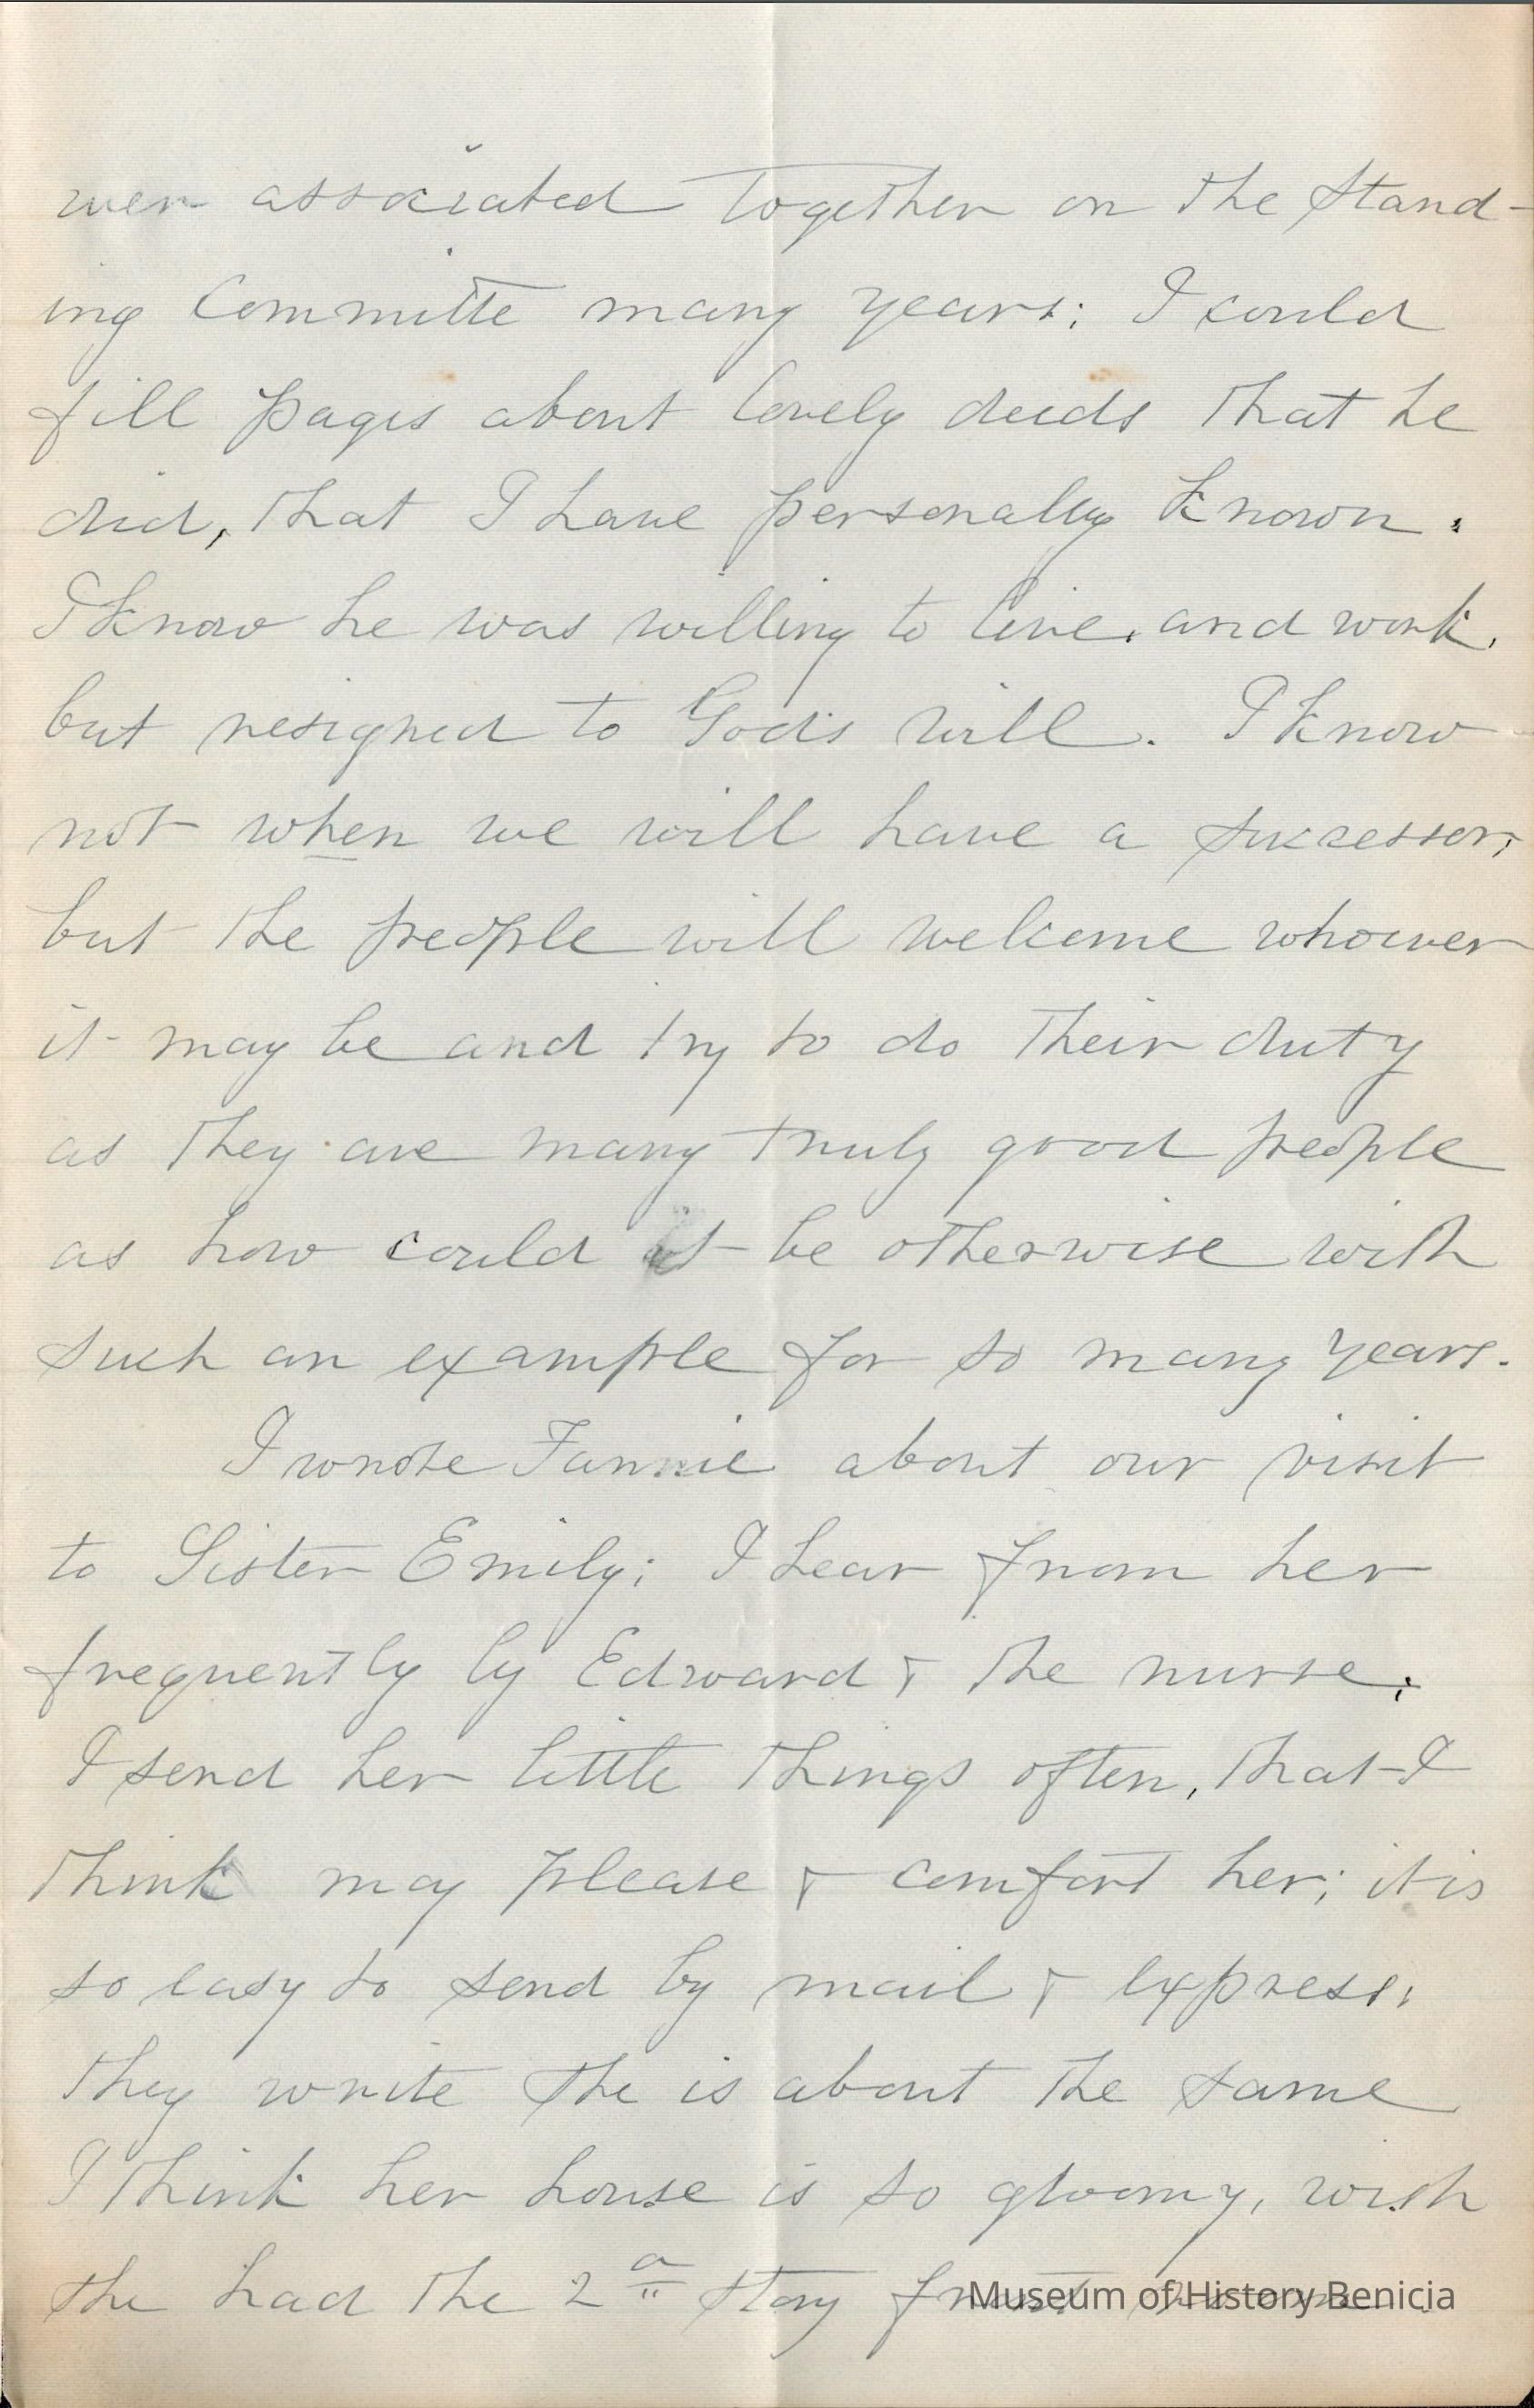 were associated together on the Stand-
ing Committe many years; I could
fill pages about lovely deeds that he
did, that I have personally known.
I know he was willing to live, and work,
but resigned to God's will. I know
not when we will have a successor,
but the people will welcome whoever
it may be and try to do their duty
as they are many truly good people
as how could it be otherwise with
such an example for so many years.
I wrote Fannie about our visit
to Sister Emily; I hear from her
frequently by Edward & the nurse;
I send her little things often, that I
think may please & comfort her; it is
so easy to send by mail & express;
they write she is about the same
I think her house is so gloomy, wish
she had the 2d story front
Museum of History Benicia